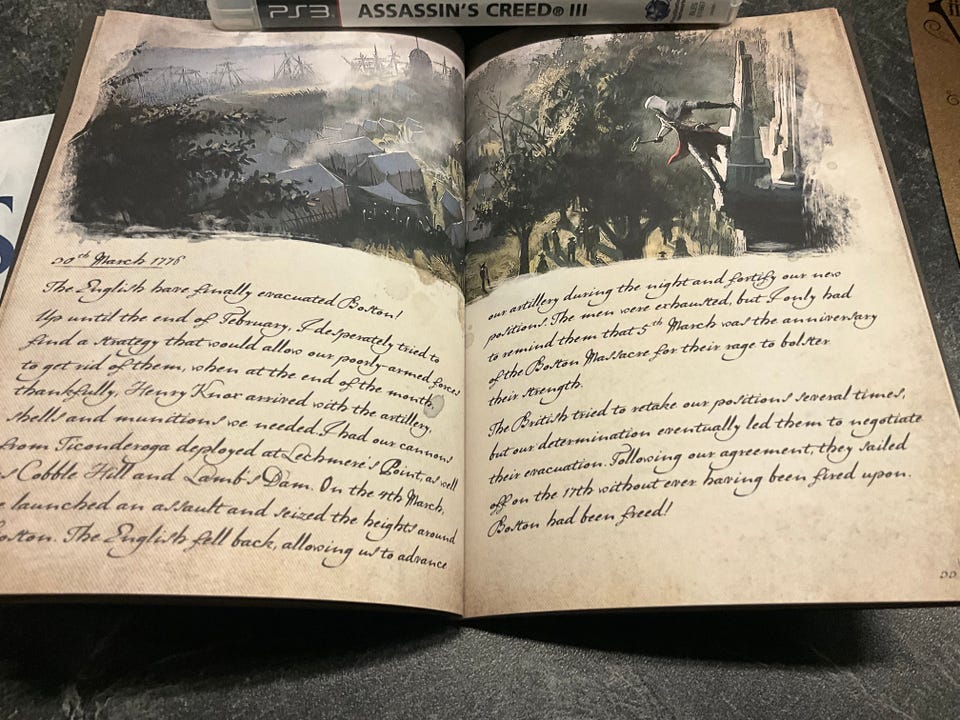 PS3 ASSASSIN'S CREED® III
20th March 1776
The English have finally evacuated Boston!
Up until the end of February, I desperately tried to
find a strategy that would allow our poorly-armed forces
to get rid of them, when at the end of the month,
thankfully, Henry Knox arrived with the artillery,
shells and munitions we needed. I had our cannons
from Ticonderoga deployed at Lechmere's Point, as well
as Cobble Hill and Lamb's Dam. On the 4th March,
e launched an assault and seized the heights around
Boston. The English fell back, allowing us to advance
our artillery during the night and fortify our new
positions. The men were exhausted, but I only had
to remind them that 5th March was the anniversary
of the Boston Massacre for their rage to bolster
their strength.
The British tried to retake our positions several times,
but our determination eventually led them to negotiate
their evacuation. Following our agreement, they sailed
off on the 17th without ever having been fired upon.
Boston had been freed!
22
S